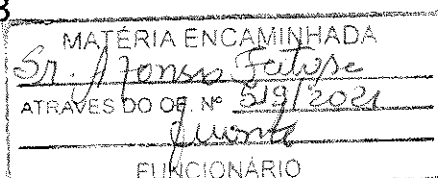 3
MATÉRIA ENCAMINHADA
Sr. Afonso
ATRAVÉS DO OF. Nº 519/2021
FUNCIONÁRIO